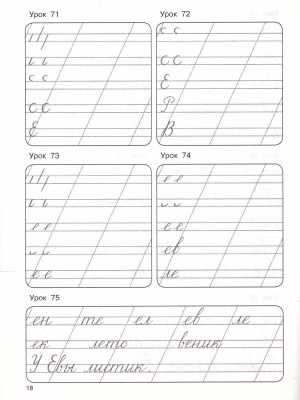 Урок 71
Урок 72
с с
и и
с с
С С
С С
Е
Е
Р
В
Урок 73
Урок 74
е е
и и
и и
е е
е е
и и
и и
ев
е е
ле
Урок 75
ен те ел ев ле
ек лето веник
У Евы листик.
18